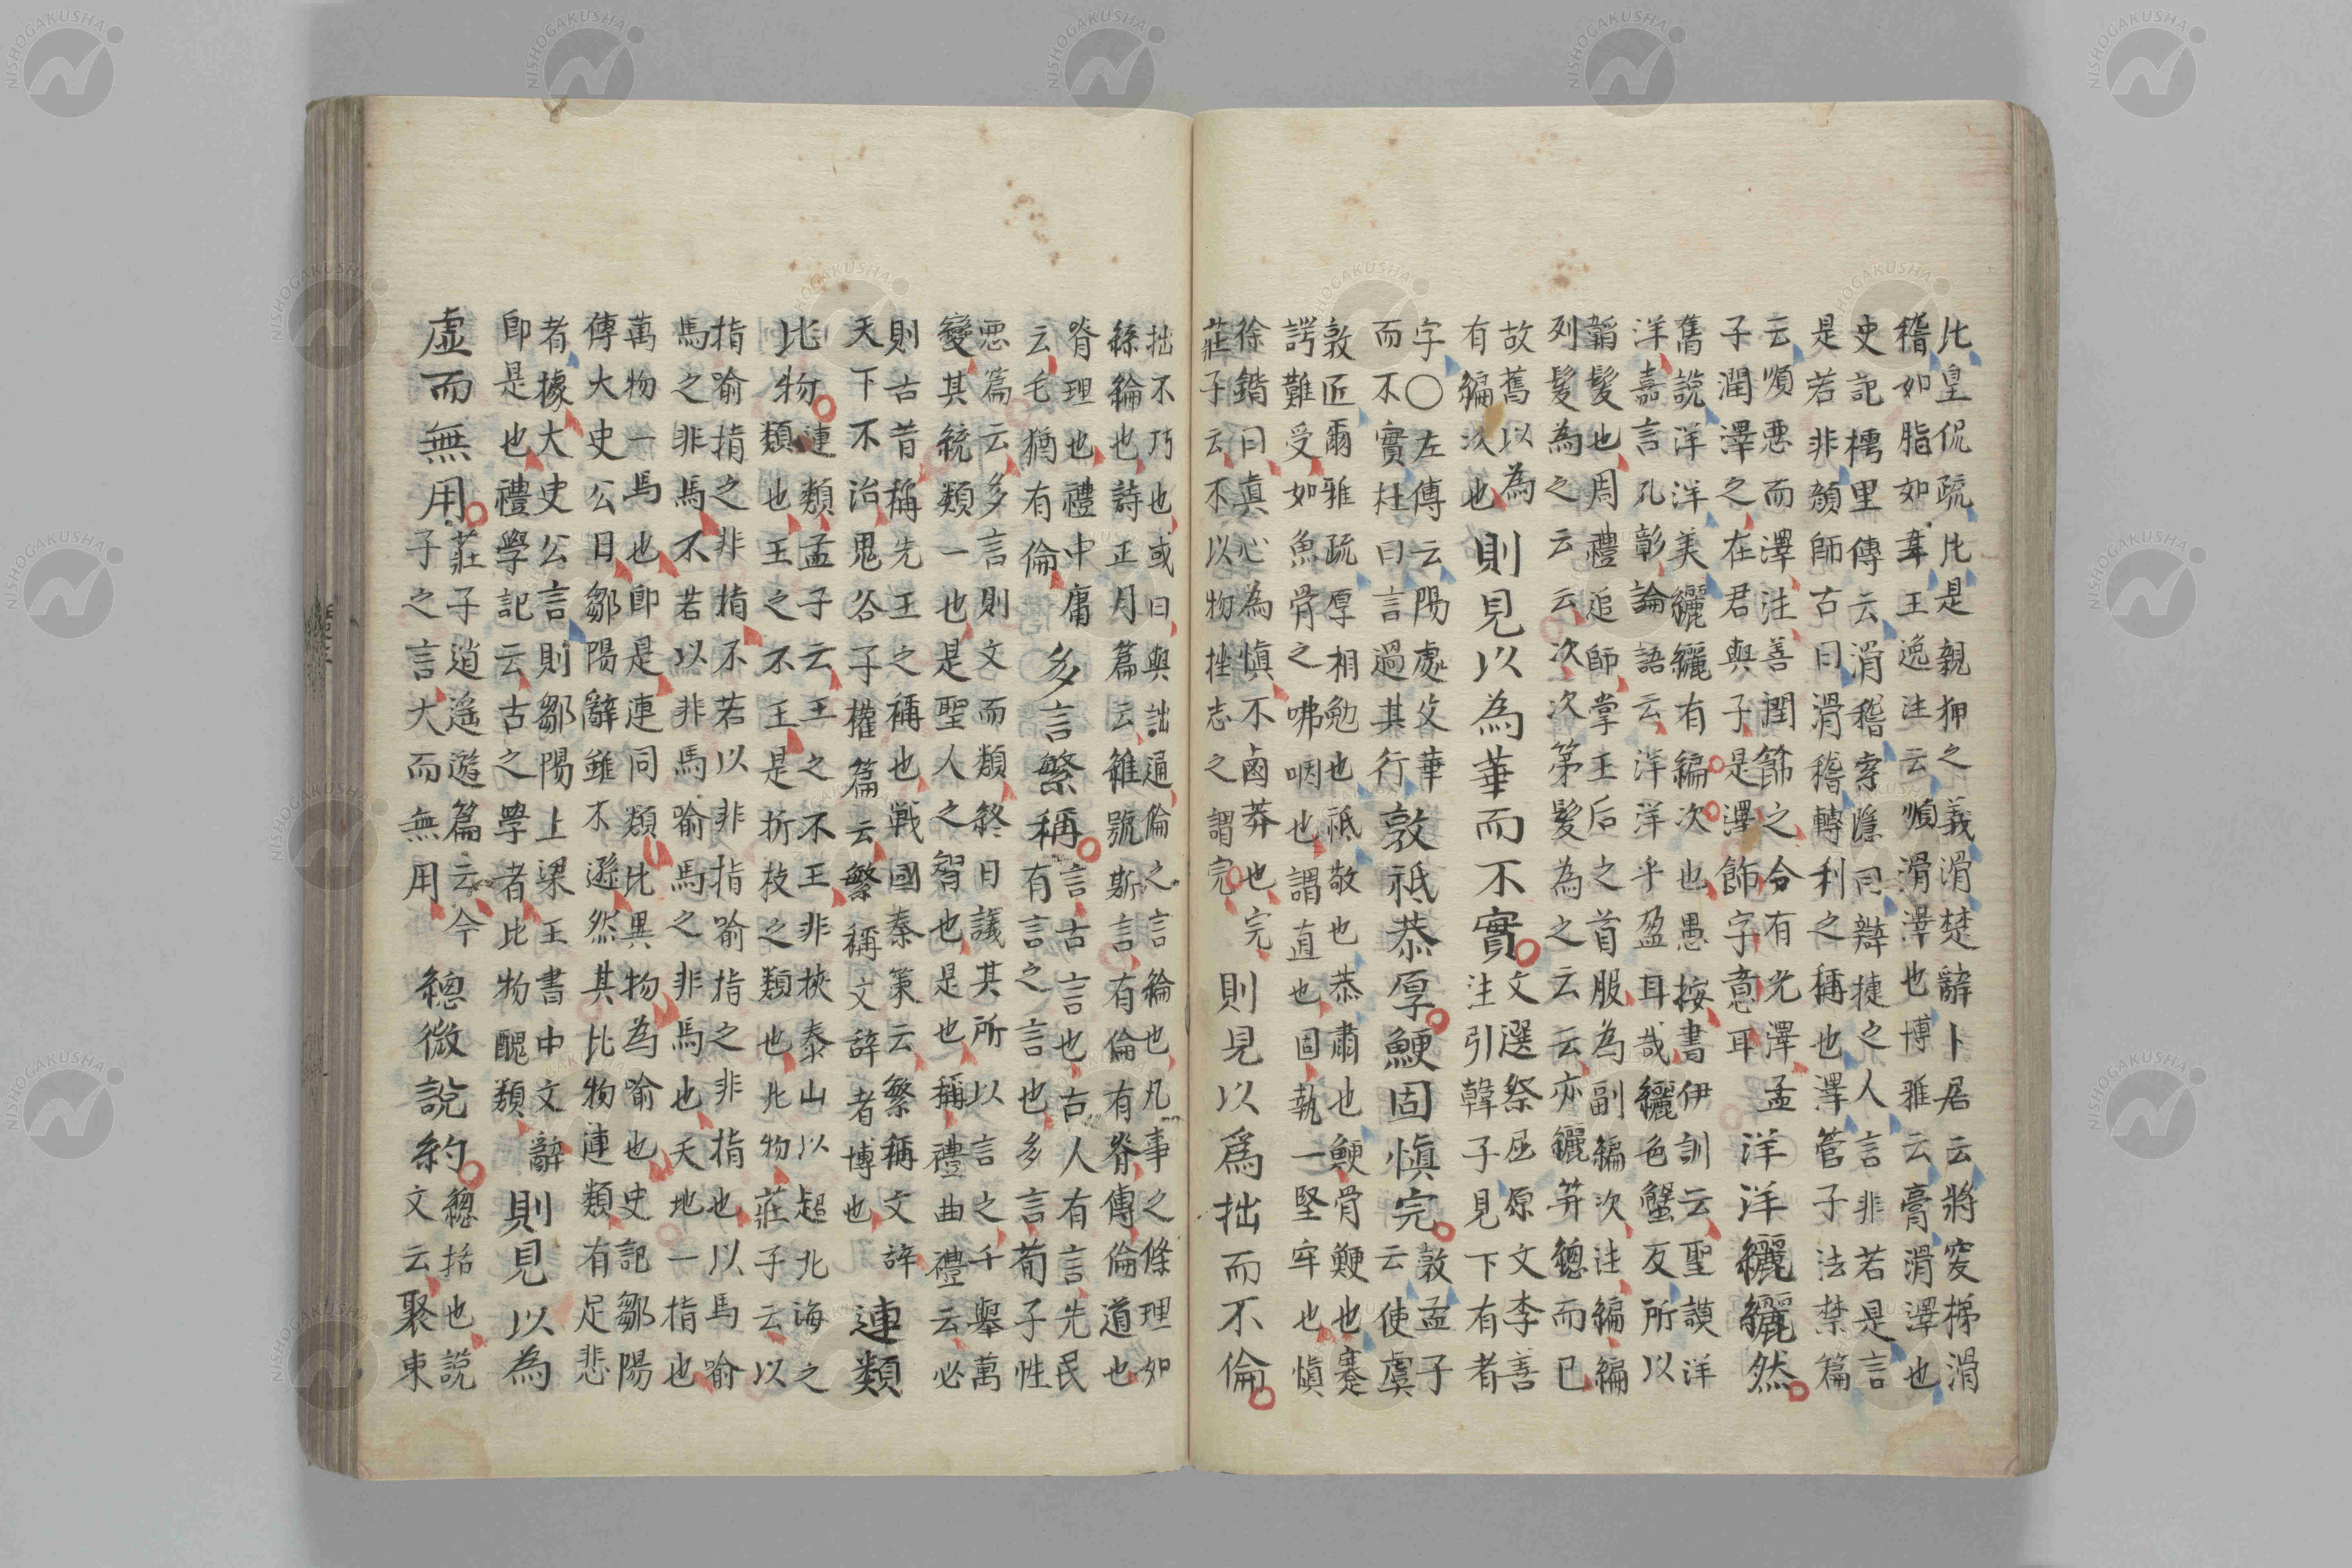 比皇侃疏比是親狎之義滑楚辭卜居云將突梯滑
稽如脂如韋王逸注云順滑澤也博雅云膏滑澤也
史記樗里傳云滑稽索隱曰辯捷之人言非若是言
是若非顔師古曰滑稽轉利之稱也澤管子法禁篇
云順惡而澤注善潤飾之令有光澤孟
子潤澤之在君與子是澤飾字意耳
洋洋纚纚然
舊說洋洋美纚纚有編次也愚按書伊訓云聖謨洋
洋嘉言孔彰論語云洋洋乎盈耳哉纚色蟹反所以
韜髮也周禮追師掌王后之首服為副編次注編編
列髮為之云云次次第髮為之云云亦纚笄總而已
故舊以為
有編次也
則見以為華而不實
文選祭屈原文李善
注引韓子見下有者
字〇左傳云陽處父華
而不實杜曰言過其行
敦祗恭厚鯁固慎完
敦孟子
云使虞
敦匠爾雅疏厚相勉也祗敬也恭肅也鯁骨鯁也蹇
諤難受如魚骨之咈咽也謂直也固執一堅牢也慎
徐鍇曰真心為慎不鹵莽也完
莊子云不以物挫志之謂完
則見以爲拙而不倫
拙不巧也或曰與詘通倫之言綸也凡事之條理如
絲綸也詩正月篇云維號斯言有倫有脊傳倫道也
脊理也禮中庸
云毛猶有倫
多言繁稱
言古言也古人有言先民
有言之言也多言荀子性
惡篇云多言則文而類終日議其所以言之千舉萬
變其統類一也是聖人之智也是也稱禮曲禮云必
則古昔稱先王之稱也戰國秦策云繁稱文辭
天下不治鬼谷子權篇云繁稱文辞者博也
連類
比物
連類孟子云王之不王非挾泰山以超北海之
類也王之不王是折枝之類也比物莊子云以
指喻指之非指不若以非指喻指之非指也以馬喻
馬之非馬不若以非馬喻馬之非馬也天地一指也
萬物一馬也即是連同類比異物為喻也史記鄒陽
傳大史公曰鄒陽辭雖不遜然其比物連類有足悲
者據大史公言則鄒陽上梁王書中文辭
即是也禮學記云古之學者比物醜類
則見以為
虛而無用
莊子逍遙遊篇云今
子之言大而無用
總微說約
總括也說
文云聚束